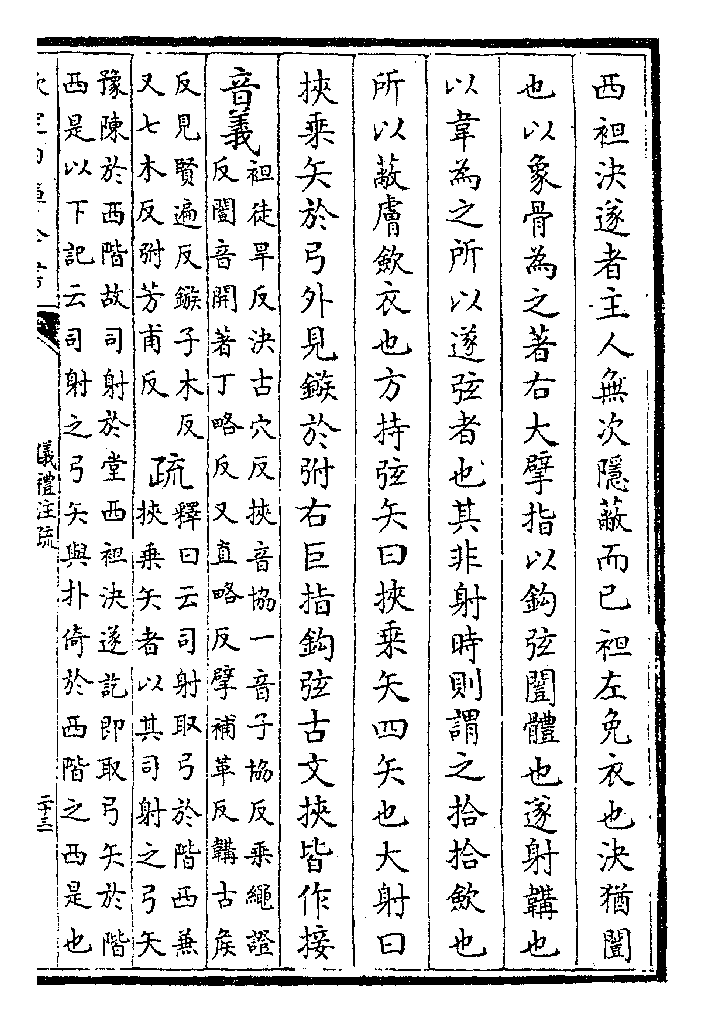 西袒決遂者主人無次隱蔽而已袒左免衣也決猶闓
也以象骨為之著右大擘指以鈎弦闓體也遂射韝也
以韋為之所以遂弦者也其非射時則謂之拾拾歛也
所以蔽膚歛衣也方持弦矢曰挾乗矢四矢也大射曰
挾乗矢於弓外見鏃於弣右巨指鈎弦古文挾皆作接
音義
袒徒旱反決古穴反挾音協一音子協反乗繩證
反闓音開著丁略反又直略反擘補革反韝古侯
反見賢遍反鏃子木反
又七木反弣芳甫反
疏
釋曰云司射取弓於階西兼
挾乗矢者以其司射之弓矢
豫陳於西階故司射於堂西袒決遂訖即取弓矢於階
西是以下記云司射之弓矢與扑倚於西階之西是也
儀禮注疏
二十三